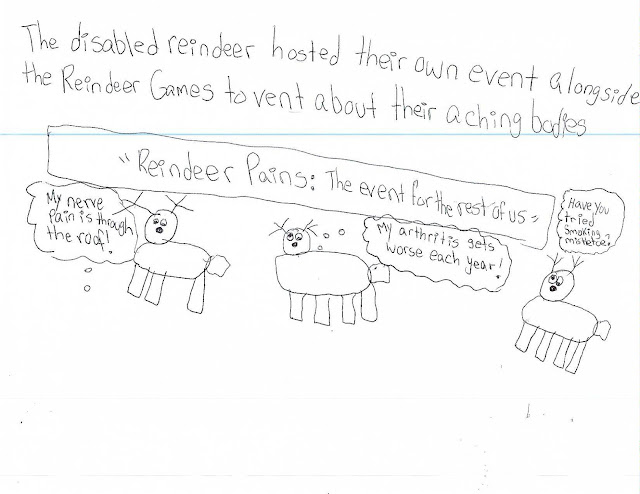 The disabled reindeer hosted their own event alongside
the Reindeer Games to vent about their aching bodies
"Reindeer Pains: The event for the rest of us"
My nerve
pain is through
the roof!
My arthritis gets
worse each year!
Have you
tried
smoking
mistletoe?